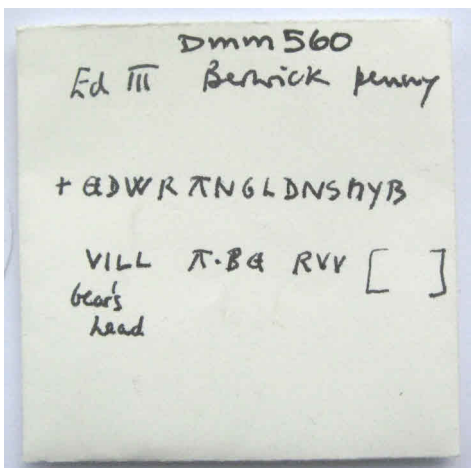 Dmm 560
Ed III Berwick penny
+ EDWR ANGLDNSHYB
VILL A·BE RVV [ ]
bear's
head